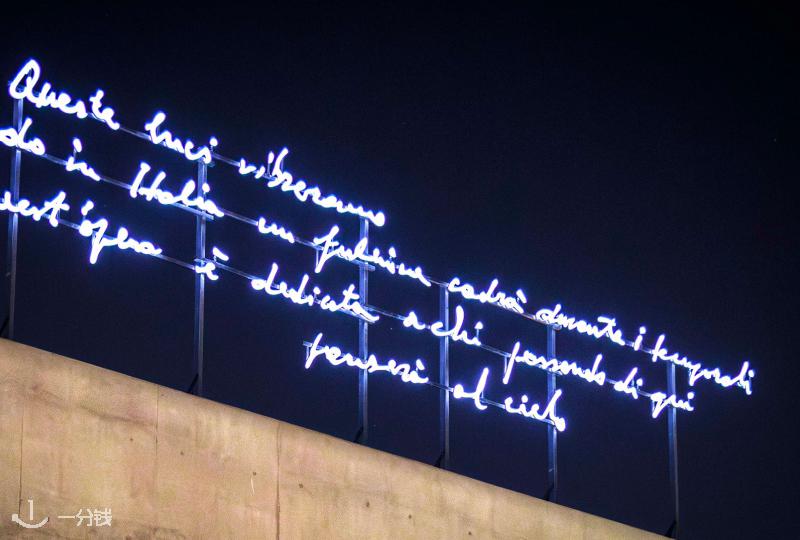 Queste luci vibreranno
do in Italia un fulmine cadrà durante i temporali
uest'opera è dedicata a chi passando di qui
penserà al cielo
一分钱